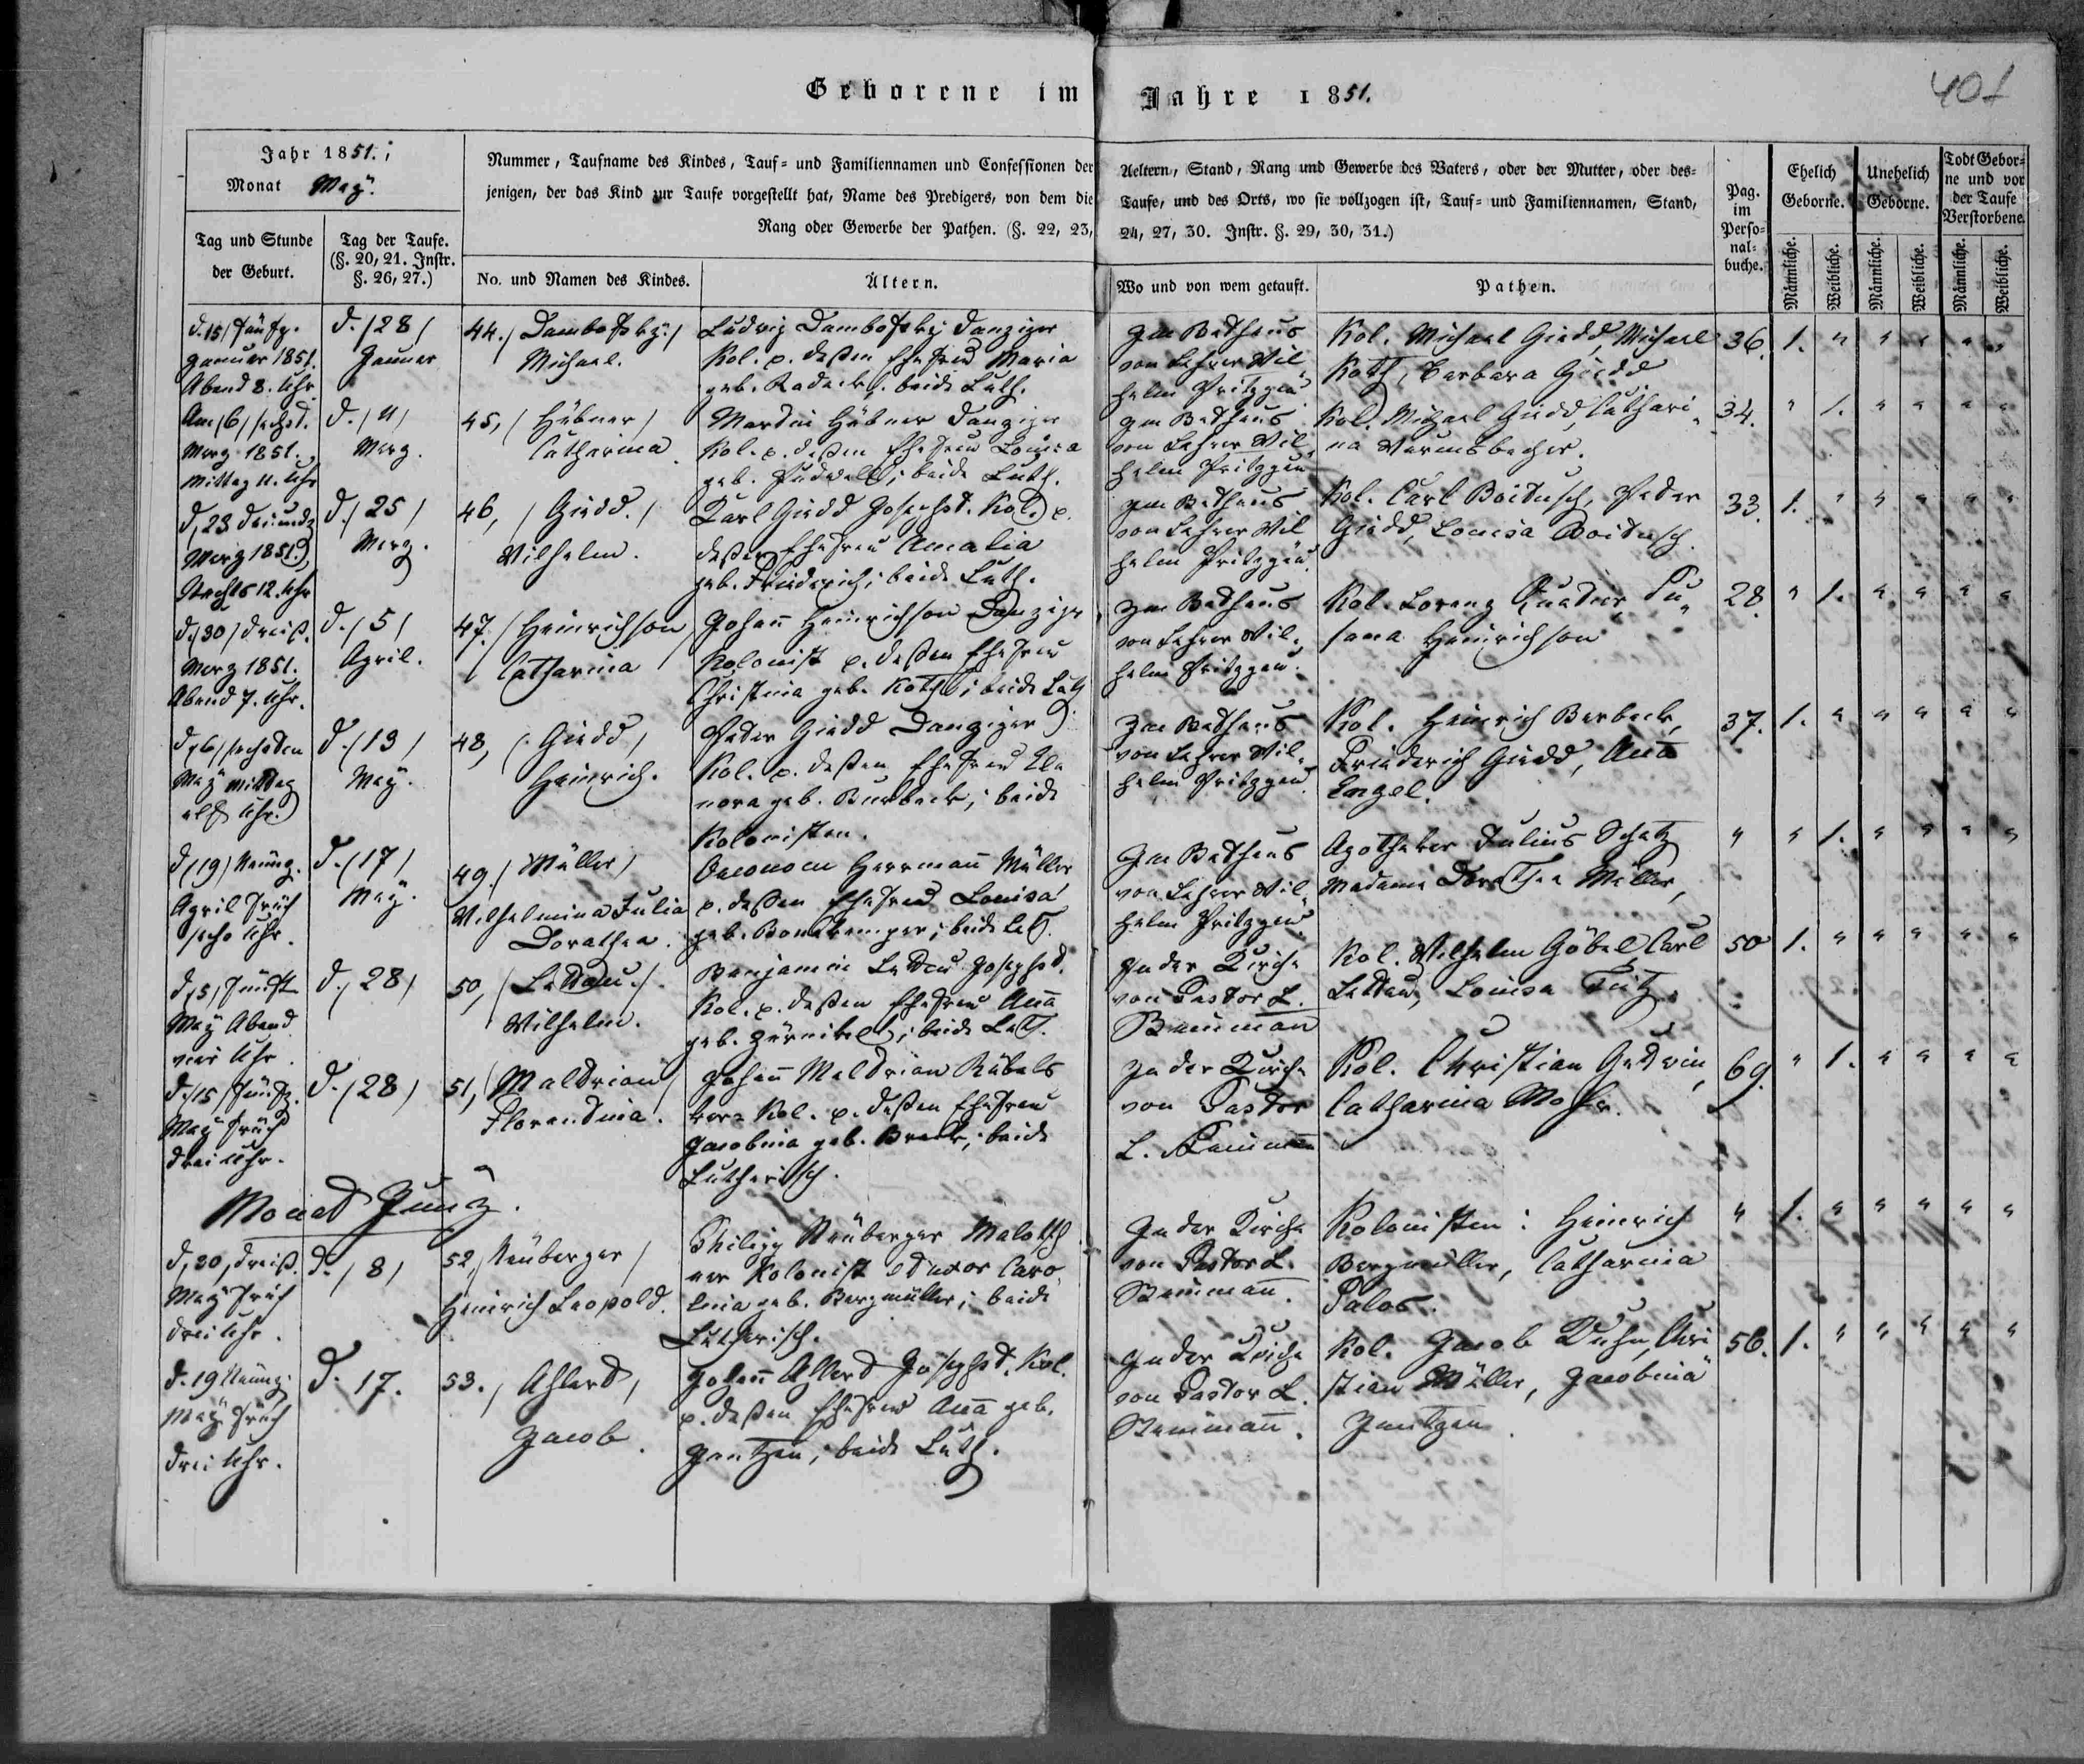 Geborene im Jahre 1851.
401
Jahr 1851.
Monat May.
Nummer, Taufname des Kindes, Tauf- und Familiennamen und Confessionen der Aeltern, Stand, Rang und Gewerbe des Vaters, oder der Mutter, oder des-
jenigen, der das Kind zur Taufe vorgestellt hat, Name des Predigers, von dem die Taufe, und des Orts, wo sie vollzogen ist, Tauf- und Familiennamen, Stand,
Rang oder Gewerbe der Pathen. (§. 22, 23, 24, 27, 30. Instr. §. 29, 30, 31.)
Pag. im Perso-nal-buche.
Ehelich Geborne.
Unehelich Geborne.
Todt Gebor-ne und vor der Taufe Verstorbene.
Tag und Stunde der Geburt.
Tag der Taufe. (§. 20, 21. Instr. §. 26, 27.)
No. und Namen des Kindes.
Ältern.
Wo und von wem getauft.
Pathen.
Männliche. Weibliche. Männliche. Weibliche. Männliche. Weibliche.
d. 15/ fünfz.
Januar 1851.
Abend 8. Uhr
d. /28/
Januar
44./ Dambofsky /
Michael.
Ludwig Dambofsky Danziger
Kol. p. deßen Ehefrau Maria
geb. Radack; beide Luth.
Im Bethaus
von Lehrer Wil-
helm Pritzgau
Kol. Michael Giedd, Michael
Koth, Barbara Giedd
36. 1. " " " " "
Am /6/ sechst.
Merz 1851.
Mittag 11. Uhr
d. /11/
Merz.
45, / Hübner /
Catharina
Martin Hübner Danziger
Kol. p. deßen Ehefrau Louisa
geb. Pudwell; beide Luth.
Im Bethaus
von Lehrer Wil-
helm Pritzgau
Kol. Michael Giedd, Cathari-
na Wurmsbecher.
34. " 1. " " " "
Merz 1851.
Nachts 12. Uhr
d. /25/
Merz.
46, / Giedd. /
Wilhelm.
Karl Giedd Josephst. Kol. p.
deßen Ehefrau Amalia
geb. Friederich; beide Luth.
Im Bethaus
von Lehrer Wil
helm Pritzgau
Kol. Carl Boitusch, Peter
Giedd, Louisa Boitusch
33. 1. " " " " "
d. /30/ dreiß.
Merz 1851.
Abend 7. Uhr.
d. /5/
April.
47. / Heinrichson
Catharina
Johann Heinrichson Danziger
Kolonist p. deßen Ehefrau
Christina geb. Koth; beide Luth
Im Bethaus
von Lehrer Wil-
helm Pritzgau.
Kol. Lorenz Su-
sana Heinrichson
28. " 1. " " " "
d. /6/ sechsten
May Mittag
elf Uhr.
d. /13/
May.
48, / Giedd /
Heinrich.
Peter Giedd Danziger
Kol. p. deßen Ehefrau Ele
nora geb. Burbeck; beide
Kolonisten.
Im Bethaus
von Lehrer Wil-
helm Pritzgau
Kol. Heinrich Berbeck,
Friederich Giedd, Anna
Engel.
37. 1. " " " " "
d. /19/ Neunz.
April früh
sechs Uhr.
d. /17/
May.
49. / Müller /
Wilhelmina Julia
Dorathea.
Oeconom Herrmann Müller
p. deßen Ehefrau Louisa
geb. Bonekemper; beide Luth.
Im Bethaus
von Lehrer Wil-
helm Pritzgau
Apotheker Julius Schatz
Madame Dorathea Müller,
" " 1. " " " "
d. /5/ fünfte
May Abend
vier Uhr.
d. /28/
50, / Lettau. /
Wilhelm.
Benjamin Lettau Josephst.
Kol. p. deßen Ehefrau Anna
geb. Zürnikel; beide Luth.
In der Kirche
von Pastor L.
Baumann
Kol. Wilhelm Göbel, Carl
Lettau, Louisa Titz.
50 1. " " " " "
d. /15/ fünfz.
May früh
drei Uhr.
d. /28/
51, / Maldrion /
Florentina.
Johann Maldrion Rübals
kera Kol. p. deßen Ehefrau
Jacobina geb. Breck; beide
Lutherisch.
In der Kirche
von Pastor
L. Baumann
Kol. Christian Gutwin,
Catharina Mohr.
69. " 1. " " " "
Monat Juny.
d. 30, dreiß.
May früh
drei Uhr.
d. /8/
52, / Neuberger /
Heinrich Leopold.
Philipp Neuberger
ner Kolonist et uxor Caro
lina geb. Bergmüller; beide
Lutherisch.
In der Kirche
von Pastor L.
Baumann.
Kolonisten: Heinrich
Bergmüller, Catharina
" 1. " " " " "
d. 19 Neunz.
May früh
drei Uhr.
d. 17.
53. / Ahlert /
Jacob.
Johann Ahlert Josephst. Kol.
p. deßen Ehefrau Anna geb.
Jantzen; beide Luth.
In der Kirche
von Pastor L.
Baumann.
Kol. Jacob Kuhn, Chri
stian Müller, Jacobina
Jantzen
56. 1. " " " " "